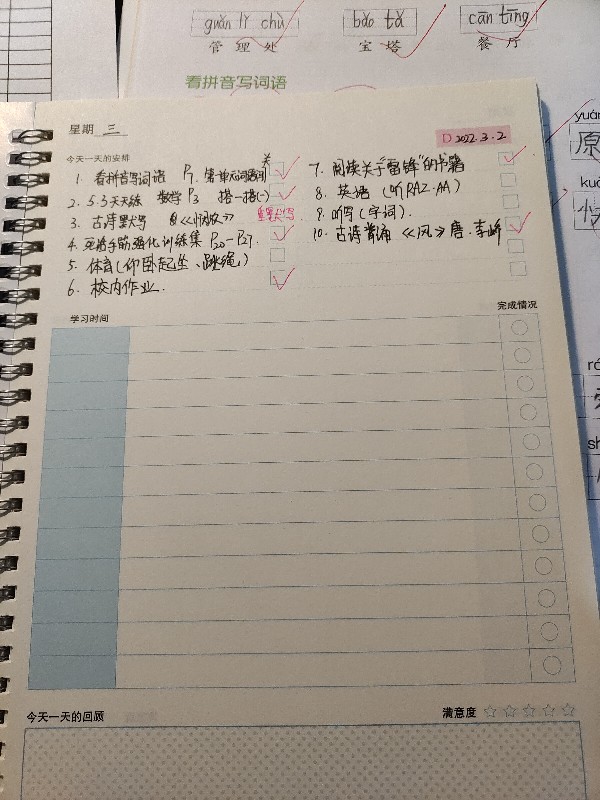 guǎn lǐ chù
bǎo tǎ
cān tīng
管理处
宝塔
餐厅
看拼音写词语
yuán
原
星期 三
D 2022.3.2
今天一天的安排
1. 看拼音写词语 P7. 第一单元词语
2. 5.3天天练 数学 P3 搭一搭(一)
3. 古诗默写
重默写
4. 英语 强化训练集 P20-P27.
5. 体育(仰卧起坐、跳绳)
6. 校内作业.
7. 阅读关于"雷锋"的书籍
8. 英语 (听RAZ·AA)
9. 听写(字词).
10. 古诗背诵 《风》唐·李峤
学习时间
完成情况
今天一天的回顾
满意度